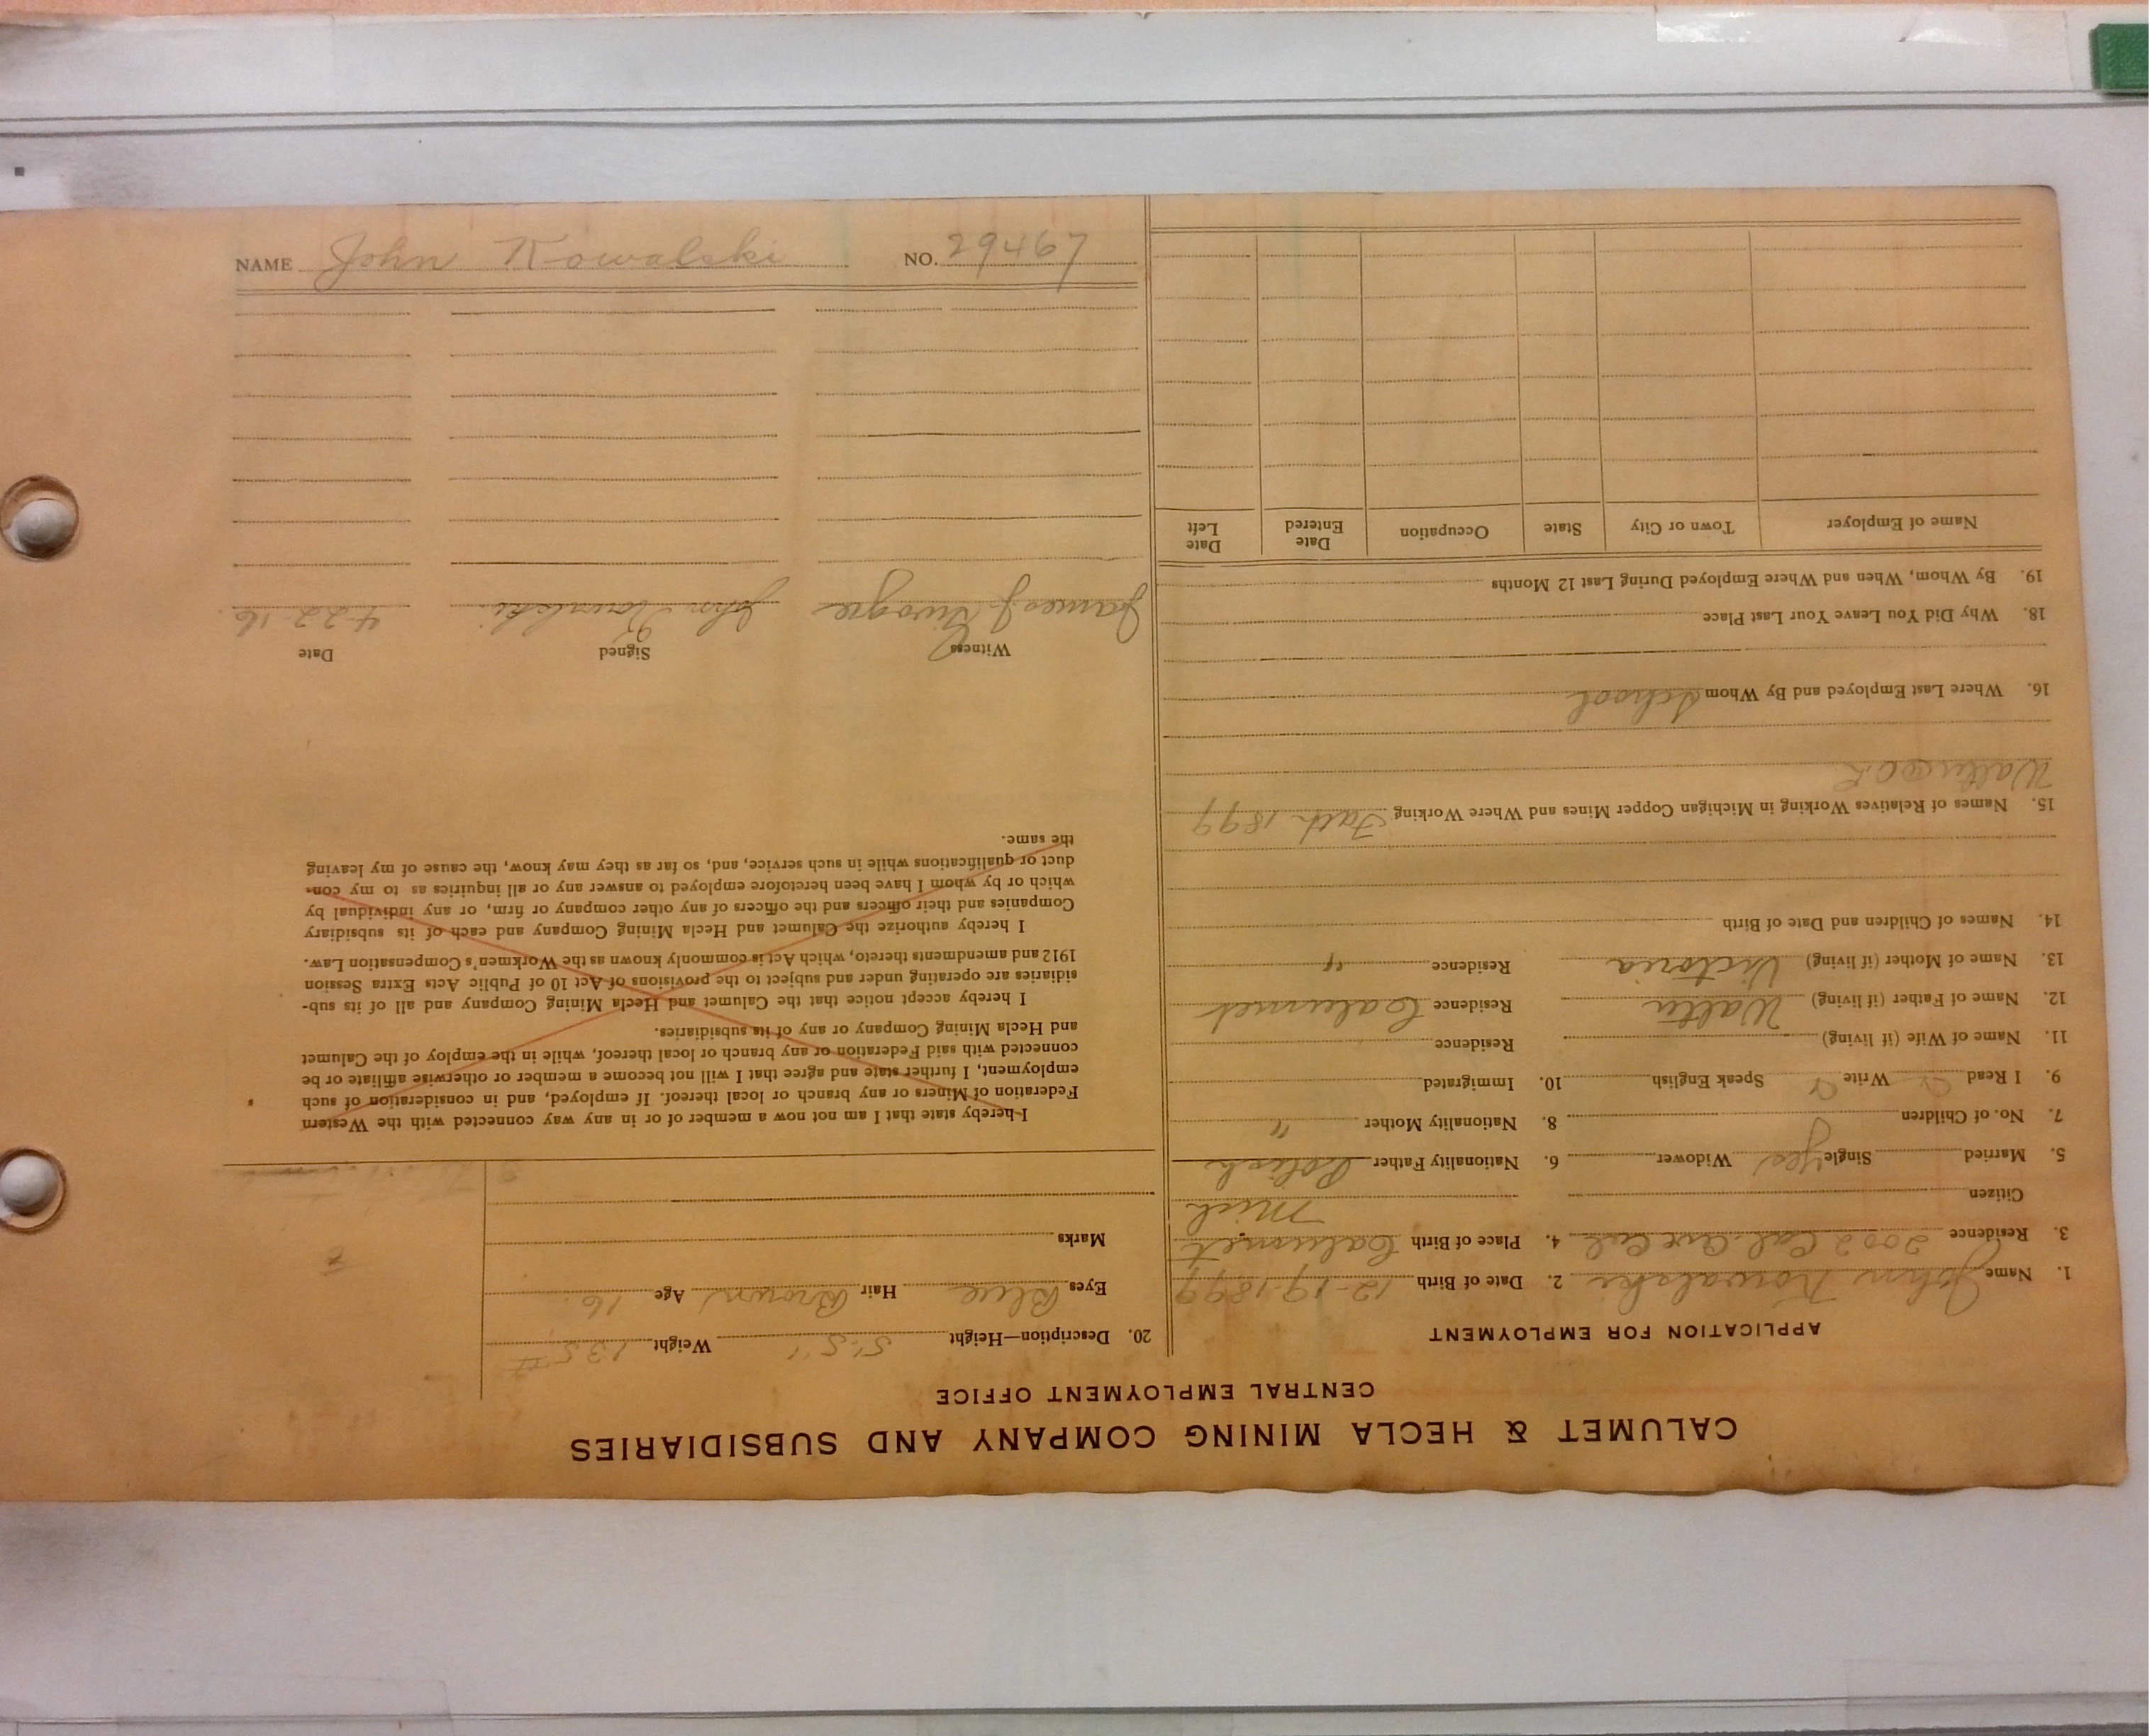 CALUMET & HECLA MINING COMPANY AND SUBSIDIARIES
CENTRAL EMPLOYMENT OFFICE
APPLICATION FOR EMPLOYMENT
1. Name John Kowalski 2. Date of Birth 12-19-1899
3. Residence 2002 Cal. Ave Cal 4. Place of Birth Calumet
Citizen Mich
5. Married Single Yes Widower 6. Nationality Father Polish
7. No. of Children 8. Nationality Mother "
9. I Read Write Speak English 10. Immigrated
11. Name of Wife (if living) Residence
12. Name of Father (if living) Walter Residence Calumet
13. Name of Mother (if living) Victoria Residence "
14. Names of Children and Date of Birth
15. Names of Relatives Working in Michigan Copper Mines and Where Working Fath 1899
Walter
16. Where Last Employed and By Whom School
18. Why Did You Leave Your Last Place
19. By Whom, When and Where Employed During Last 12 Months
Name of Employer Town or City State Occupation Date Entered Date Left
20. Description—Height 5'.5" Weight 135#
Eyes Blue Hair Brown Age 16
Marks
I hereby state that I am not now a member of or in any way connected with the Western
Federation of Miners or any branch or local thereof. If employed, and in consideration of such
employment, I further state and agree that I will not become a member or otherwise affiliate or be
connected with said Federation or any branch or local thereof, while in the employ of the Calumet
and Hecla Mining Company or any of its subsidiaries.
I hereby accept notice that the Calumet and Hecla Mining Company and all of its sub-
sidiaries are operating under and subject to the provisions of Act 10 of Public Acts Extra Session
1912 and amendments thereto, which Act is commonly known as the Workmen's Compensation Law.
I hereby authorize the Calumet and Hecla Mining Company and each of its subsidiary
Companies and their officers and the officers of any other company or firm, or any individual by
which or by whom I have been heretofore employed to answer any or all inquiries as to my con-
duct or qualifications while in such service, and, so far as they may know, the cause of my leaving
the same.
Witness Signed Date
James J. John Kowalski 4-22-16
NAME John Kowalski NO. 29467